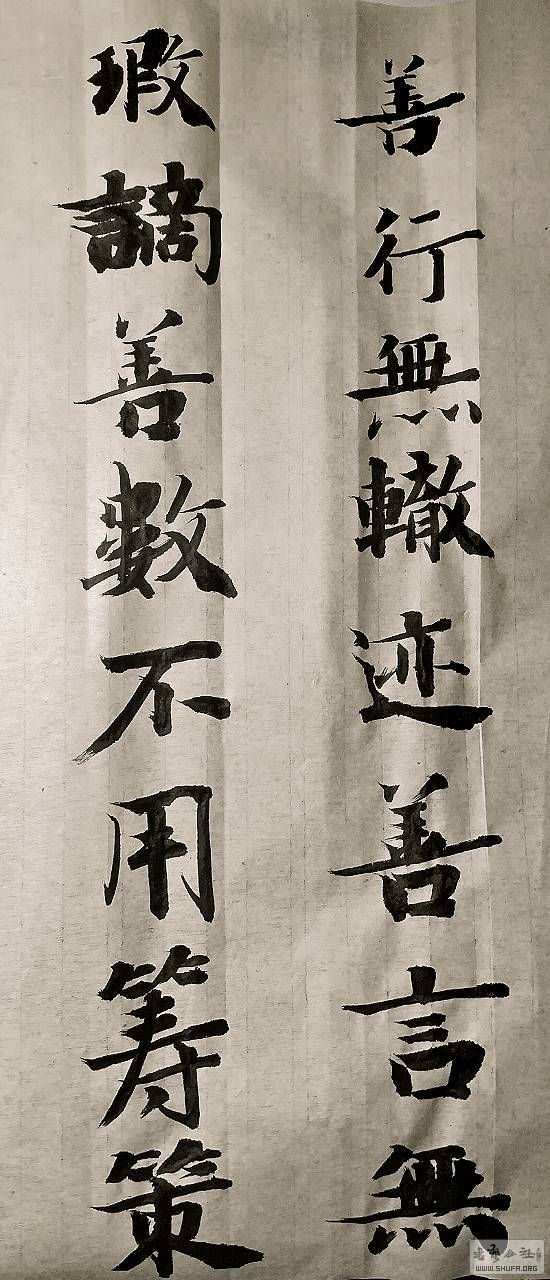 善行無轍迹善言無
瑕謫善數不用筹策
WWW.SHUFA.ORG